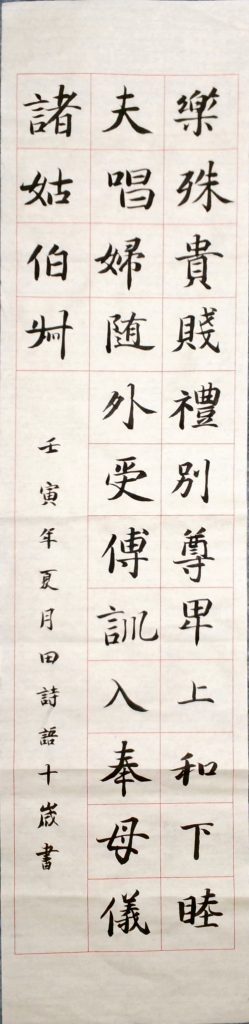 樂殊貴賤禮別尊卑上和下睦
夫唱婦随外受傅訓入奉母儀
諸姑伯艸
壬寅年夏月田詩語十歲書